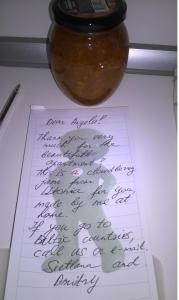 Dear Angela!
Thank you very
much for the
beautiful
apartment!
This is a cloudberry
jame from
Estonia for you,
made by me at
home.
If you go to
Baltic countries,
call us or e-mail.
Svetlana and
Dmitry